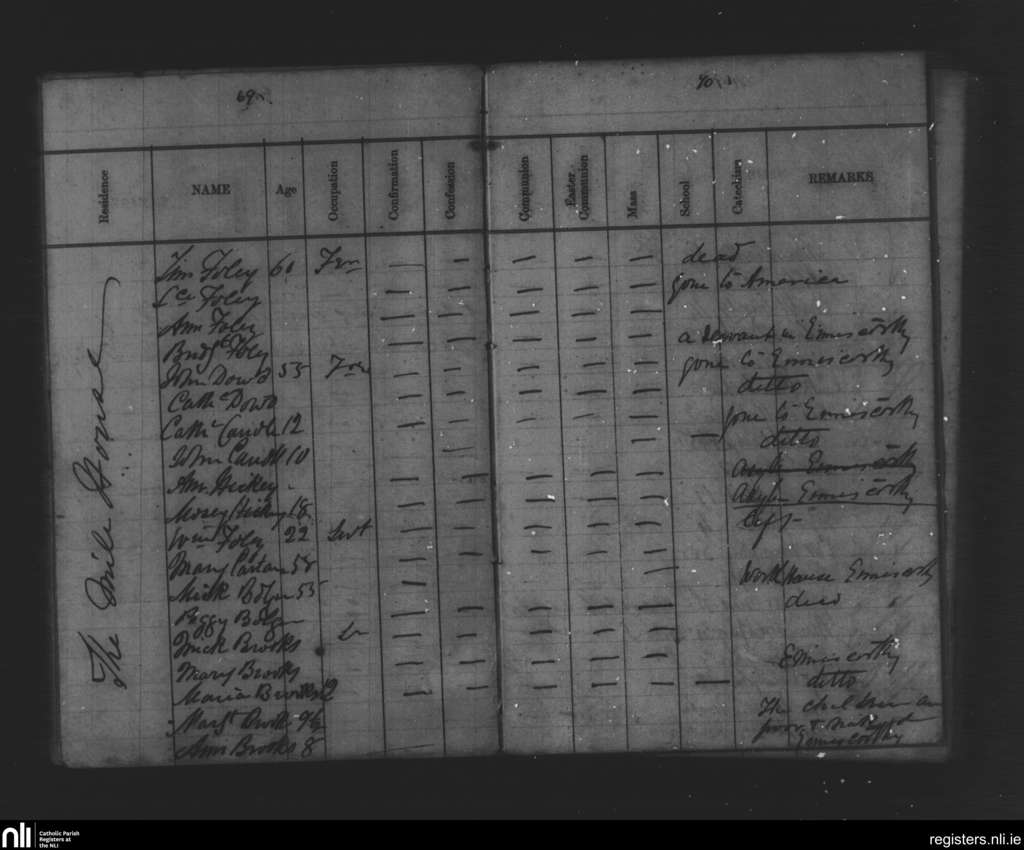 69
70
Residence NAME Age Occupation Confirmation Confession Communion Easter Communion Mass School Catechism REMARKS
The Mile House
Tim Foley 60 Fmr — — — — — dead
Lce Foley — — — — — gone to America
Ann Foley — — — — —
Bridgt Foley — — — — — a servant in Enniscorthy
John Dowd 55 — — — — — gone to Enniscorthy
Cathe Dowd — — — — — ditto
Cathe Caudle 12 — — — — — gone to Enniscorthy
John Caudle 10 — — — ditto
Ann Hickey — — — — — Enniscorthy
Mosey Hickey 18 — — — — — Enniscorthy
Wm Foley 22 Servt — — — — —
Mary 58 — — — — —
Mick Bolger 55 — — Work House Enniscorthy
Peggy Bolger — — — — — dead
Mick Brooks — — — — —
Mary Brooks — — — — — Enniscorthy
Maria Brooks 12 — — — — — — ditto
Margt 9½ The children are
Ann Brooks 8 — poor & naked
Enniscorthy
nli
Catholic Parish
Registers at
the NLI
registers.nli.ie